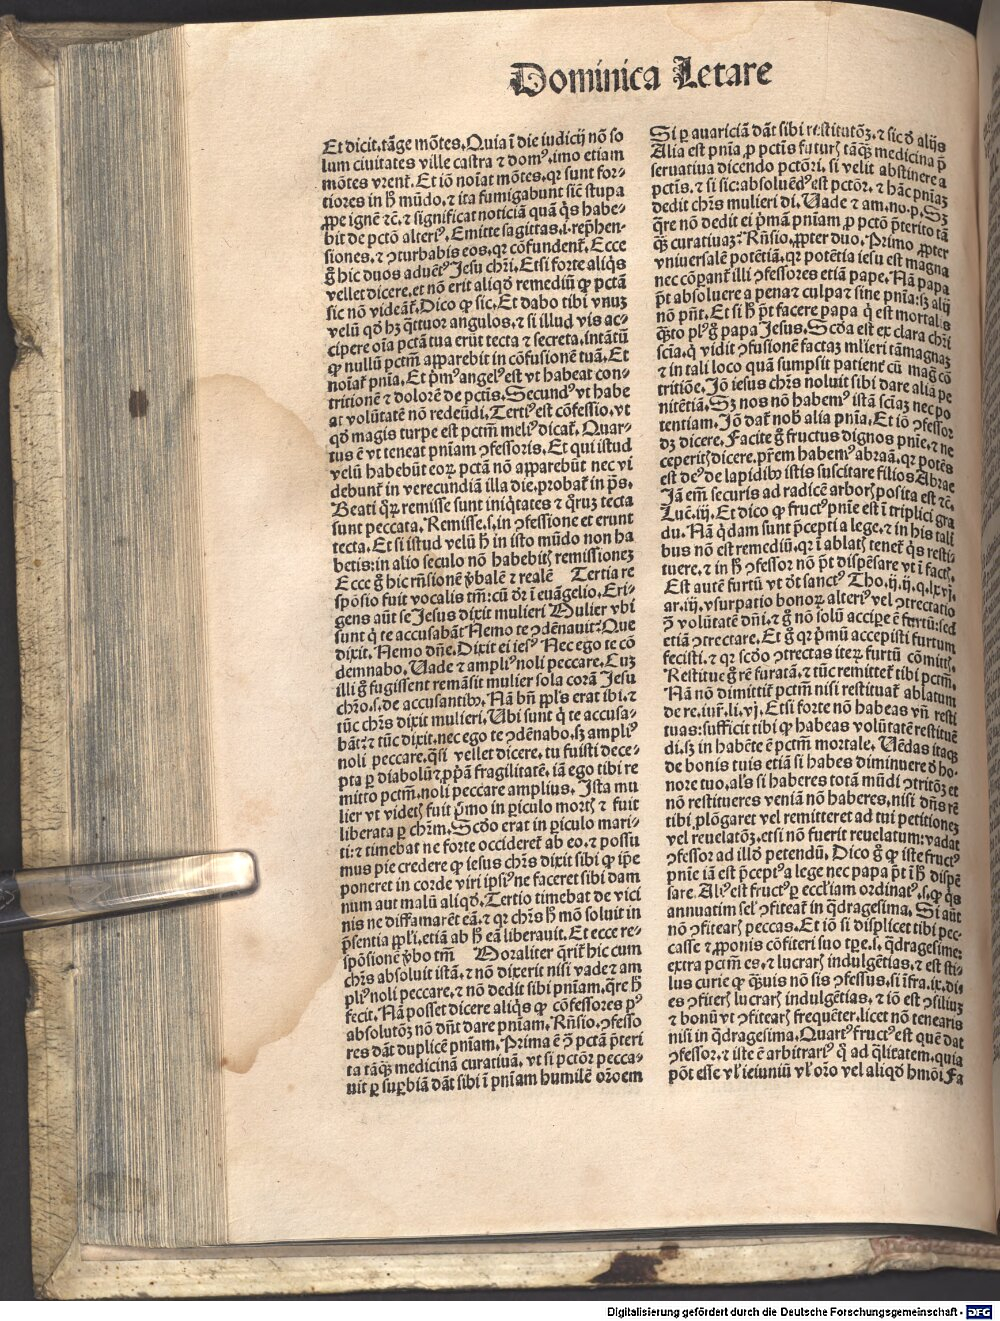 Dominica Letare
Et dicit. tãge mõtes. Quia ĩ die iudicij nõ so
lum ciuitates ville castra ⁊ domꝰ. imo etiam
mõtes vrent̃. Et iõ noĩat mõtes. qꝛ sunt for⸗
tiores in hͦ mũdo. ⁊ ita fumigabunt sic̃ stupa
ꝓpe ignẽ ⁊c̃. ⁊ significat noticiã quã qͥs habe⸗
bit de pctõ alteriꝰ. Emitte sagittas. i. rep̃hen⸗
siones. ⁊ ꝯturbabis eos. qꝛ cõfundent̃. Ecce
gͦ hic duos aduẽtꝰ Jesu chrĩ. Etsi forte aliqͥs
vellet dicere. et nõ erit aliqd̃ remediũ ꝙ pctã
sic nõ videãt̃. Dico ꝙ sic. Et dabo tibi vnuꝫ
velũ qd̃ hꝫ qͣttuor angulos. ⁊ si illud vis ac⸗
cipere oĩa pctã tua erũt tecta ⁊ secreta. intãtũ
ꝙ nullũ pctm̃ apparebit in cõfusionẽ tuã. Et
noĩat̃ pnĩa. Et p̃mꝰ angelꝰ est vt habeat con⸗
tritionẽ ⁊ dolorẽ de pctĩs. Secundꝰ vt habe
at volũtatẽ nõ redeũdi. Tertiꝰ est cõfessio. vt
qd̃ magis turpe est pctm̃ meliꝰ dicat̃. Quar⸗
tus ẽ vt teneat pnĩam ꝯfessoris. Et qui istud
velũ habebũt eoꝝ pctã nõ apparebũt nec vĩ
debunt̃ in verecundiã illa die. probat̃ in p̃s.
Beati qͦꝝ remisse sunt iniqͥtates ⁊ qͦruꝫ tecta
sunt peccata. Remisse. s. in ꝯfessione et erunt
tecta. Et si istud velũ hͦ in isto mũdo non ha
bebitis: in alio seculo nõ habebitꝭ remissionẽ
Ecce gͦ hic rñsionẽ ṽbalẽ ⁊ realẽ Tertia re
spõsio fuit vocalis tm̃: cũ dr̃ ĩ euãgelio. Eri⸗
gens aũt se Jesus dixit mulieri Mulier vbi
sunt qͥ te accusabãt Nemo te ꝯdẽnauit: Que
dixit. Nemo dñe. Dixit ei iesꝰ Nec ego te cõ
demnabo. Uade ⁊ ampliꝰ noli peccare. Cuꝫ
illi gͦ fugissent remãsit mulier sola corã Jesu
chrõ. s. de accusantibꝰ. Nã bñ ppl̃s erat ibi. ⁊
tũc chrs̃ dixit mulieri. Ubi sunt qͥ te accusa⸗
bãt: ⁊ tũc dixit. nec ego te ꝯdẽnabo. sꝫ ampliꝰ
noli peccare. qͣsi vellet dicere. tu fuisti dece⸗
pta ꝑ diabolũ ⁊ ꝓp̃ã fragilitatẽ. iã ego tibi re
mitto pctm̃. noli peccare amplius. Ista mu
lier vt videtꝭ fuit pͥmo in ꝑiculo mortꝭ ⁊ fuit
liberata ꝑ chrm̃. Scd̃o erat in ꝑiculo mari⸗
ti: ⁊ timebat ne forte occideret̃ ab eo. ⁊ possu
mus pie credere ꝙ iesus chrs̃ dixit sibi ꝙ ip̃e
poneret in corde viri ipsiꝰ ne faceret sibi dam
num aut malũ aliqd̃. Tertio timebat de vici
nis ne diffamarẽt eã. ⁊ qꝛ chrs̃ hͦ mõ soluit in
p̃sentia ppl̃i. etiã ab hͦ eã liberauit. Et ecce re⸗
spõsionẽ ṽbo tm̃ Moraliter qͣrit̃ hic cum
chrs̃ absoluit istã. ⁊ nõ dixerit nisi vade ⁊ am
pliꝰ noli peccare. ⁊ nõ dedit sibi pnĩam. qͣre hͦ
fecit. Nã posset dicere aliqͥs ꝙ cõfessores pꝰ
absolutõꝫ nõ dñt dare pnĩam. Rñsio. ꝯfesso
res dãt duplicẽ pnĩam. Prima ẽ ꝯ̃ pctã p̃teri
ta tãqꝫ medicinã curatiuã. vt si pctõr pecca⸗
uit ꝑ suꝑbiã dãt sibi ĩ pnĩam humilẽ orõem
Si ꝑ auariciã dãt sibi restitutõꝫ. ⁊ sic đ alijs
Alia est pnĩa ꝓ pctĩs futurꝭ tãqꝫ medicina p̃
seruatiua dicendo pctõri. si velit abstinere a
pctĩs. ⁊ si sic: absoluẽdꝰ est pctõr. ⁊ hãc pnĩaꝫ
dedit chrs̃ mulieri di. Uade ⁊ am. no. p. Sꝫ
qͣre nõ dedit ei pͥmã pnĩam ꝓ pctõ p̃terito tã
qꝫ curatiuaꝫ: Rñsio. ꝓpter duo. Primo ꝓpter
vniuersalẽ potẽtiã. qꝛ potẽtia iesu est magna
nec cõꝑant̃ illi ꝯfessores etiã pape. Nã papa
p̃t absoluere a pena ⁊ culpa ⁊ sine pnĩa: sꝫ alij
nõ pñt. Et si hͦ p̃t facere papa qͥ est mortalis
qͣ̃to plꝰ gͦ papa Jesus. Scd̃a est ex clara chrĩ
sciã. qͥ vidit ꝯfusionẽ factaꝫ ml̃ieri tã magnaꝫ
⁊ in tali loco quã sumpsit patient̃ cũ magͣ cõ
tritiõe. Jõ iesus chrs̃ noluit sibi dare aliã pe
nitẽtiã. Sꝫ nos nõ habemꝰ istã sciãꝫ nec po
tentiam. Jõ dat̃ nob̃ alia pnĩa. Et iõ ꝯfessor
dꝫ dicere. Facite gͦ fructus dignos pnĩe. ⁊ ne
ceperitꝭ dicere. pr̃em habemꝰ abraã. qꝛ potẽs
est deꝰ de lapidibꝰ istis suscitare filios Abrae
Jã em̃ securis ad radicẽ arborꝭ posita est ⁊c̃.
Luc̃. iij. Et dico ꝙ fructꝰ pnĩe est ĩ triplici gra
du. Nã qͥdam sunt p̃cepti a lege. ⁊ in his tali
bus nõ est remediũ. qꝛ ĩ ablatꝭ tenet̃ qͥs resti⸗
tuere. ⁊ in hͦ ꝯfessor nõ p̃t dispẽsare vt ĩ factꝭ.
Est autẽ furtũ vt d̃t sanctꝰ Tho. ij. ij. q. lxvj.
ar. iij. vsurpatio bonoꝝ alteriꝰ vel ꝯtrectatio
ꝯ̃ volũtatẽ dñi. ⁊ gͦ nõ solũ acciꝑe ẽ furtũ: sed
etiã ꝯtrectare. Et gͦ qꝛ pͥmũ accepisti furtum
fecisti. ⁊ qꝛ scd̃o ꝯtrectas iteꝝ furtũ cõmittꝭ.
Restitue gͦ rẽ furatã. ⁊ tũc remittet̃ tibi pctm̃.
Nã nõ dimittit̃ pctm̃ nisi restituat̃ ablatum
de re. iur̃. li. vj. Etsi forte nõ habeas vñ resti
tuas: sufficit tibi ꝙ habeas volũtatẽ restituẽ
di. sꝫ in habẽte ẽ pctm̃ mortale. Uẽdas itaqꝫ
de bonis tuis etiã si habes diminuere đ ho⸗
nore tuo. al̃s si haberes totã mũdi ꝯtritõꝫ et
nõ restitueres veniã nõ haberes. nisi dñs rẽ
tibi ꝓlõgaret vel remitteret ad tui petitionẽ
vel reuelatõꝫ. etsi nõ fuerit reuelatum: vadat
ꝯfessor ad illd̃ petendũ. Dico gͦ ꝙ iste fructꝰ
pnĩe iã est p̃ceptꝰ a lege nec papa p̃t ĩ hͦ dispẽ
sare. Aliꝰ est fructꝰ ꝑ eccl̃iam ordinatꝰ. s. ꝙ qͥs
annuatim sel̃ ꝯfiteat̃ in qͣdragesima. Si aũt
nõ ꝯfitearꝭ peccas. Et iõ si displicet tibi pec⸗
casse ⁊ ꝓponis cõfiteri suo tꝑe. s. qͣdragesime:
extra pctm̃ es. ⁊ lucrarꝭ indulgẽtias. ⁊ est sti⸗
lus curie ꝙ qͣ̃uis nõ sis ꝯfessus. si ĩfra. ix. di⸗
es ꝯfiterꝭ lucrarꝭ indulgẽtias. ⁊ iõ est ꝯsiliuꝫ
⁊ bonũ vt ꝯfitearꝭ frequẽter. licet nõ tenearis
nisi in qͣdragesima. Quartꝰ fructꝰ est quẽ dat
ꝯfessor. ⁊ iste ẽ arbitrariꝰ qͥ ad qͣlitatem. quia
põt esse vl̃ ieiuniũ vl̃ or̃o vel aliqd̃ hmõi Fa
Digitalisierung gefördert durch die Deutsche Forschungsgemeinschaft - DFG